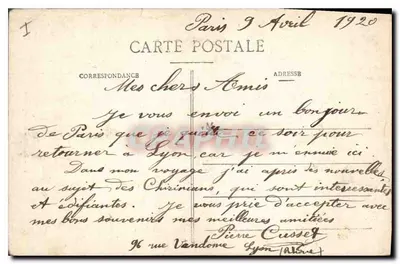 I
Paris 9 Avril 1920
CARTE POSTALE
CORRESPONDANCE ADRESSE
Mes chers Amis
Je vous envoi un bonjour
de Paris que je quitte, ce soir pour
retourner à Lyon car je m'ennuie ici.
Dans mon voyage j'ai après des nouvelles
au sujet des qui sont interessantes
et édifiantes. Je vous prie d'accepter avec
mes bons souvenirs mes meilleures amitiées
Pierre Cusset
96 rue Vendome Lyon (Rhône)